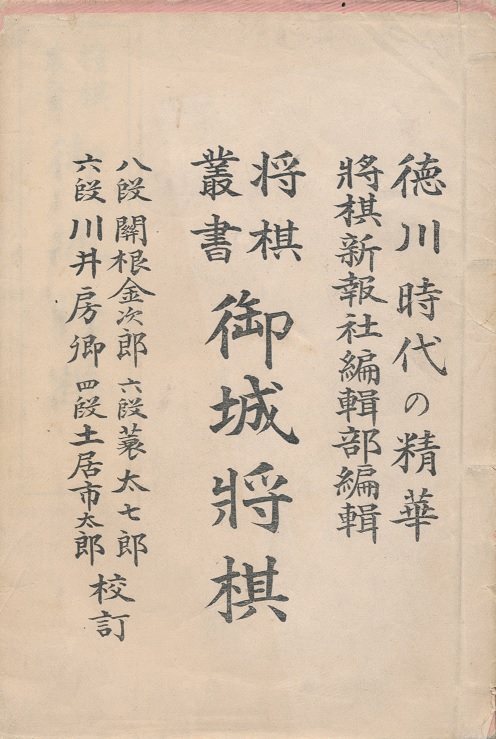 徳川時代の精華
將棋新報社編輯部編輯
将棋叢書
御城將棋
八段關根金次郎 六段蓑太七郎
六段川井房卿 四段土居市太郎
校訂